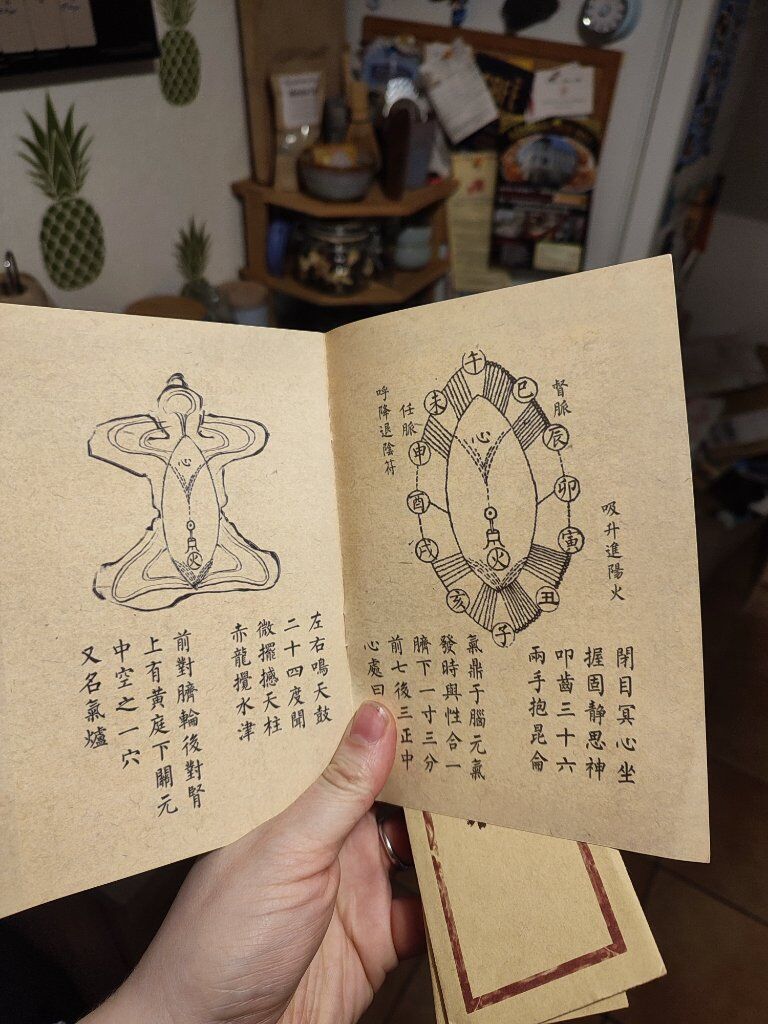 午
巳
辰
卯
寅
丑
子
亥
戌
酉
申
未
心
火
督脈
吸升進陽火
任脈
呼降退陰符
閉目冥心坐
握固靜思神
叩齒三十六
兩手抱昆侖
氣鼎于腦元氣
發時與性合一
臍下一寸三分
前七後三正中
心處曰
心
火
左右鳴天鼓
二十四度聞
微擺撼天柱
赤龍攪水津
前對臍輪後對腎
上有黃庭下關元
中空之一穴
又名氣爐